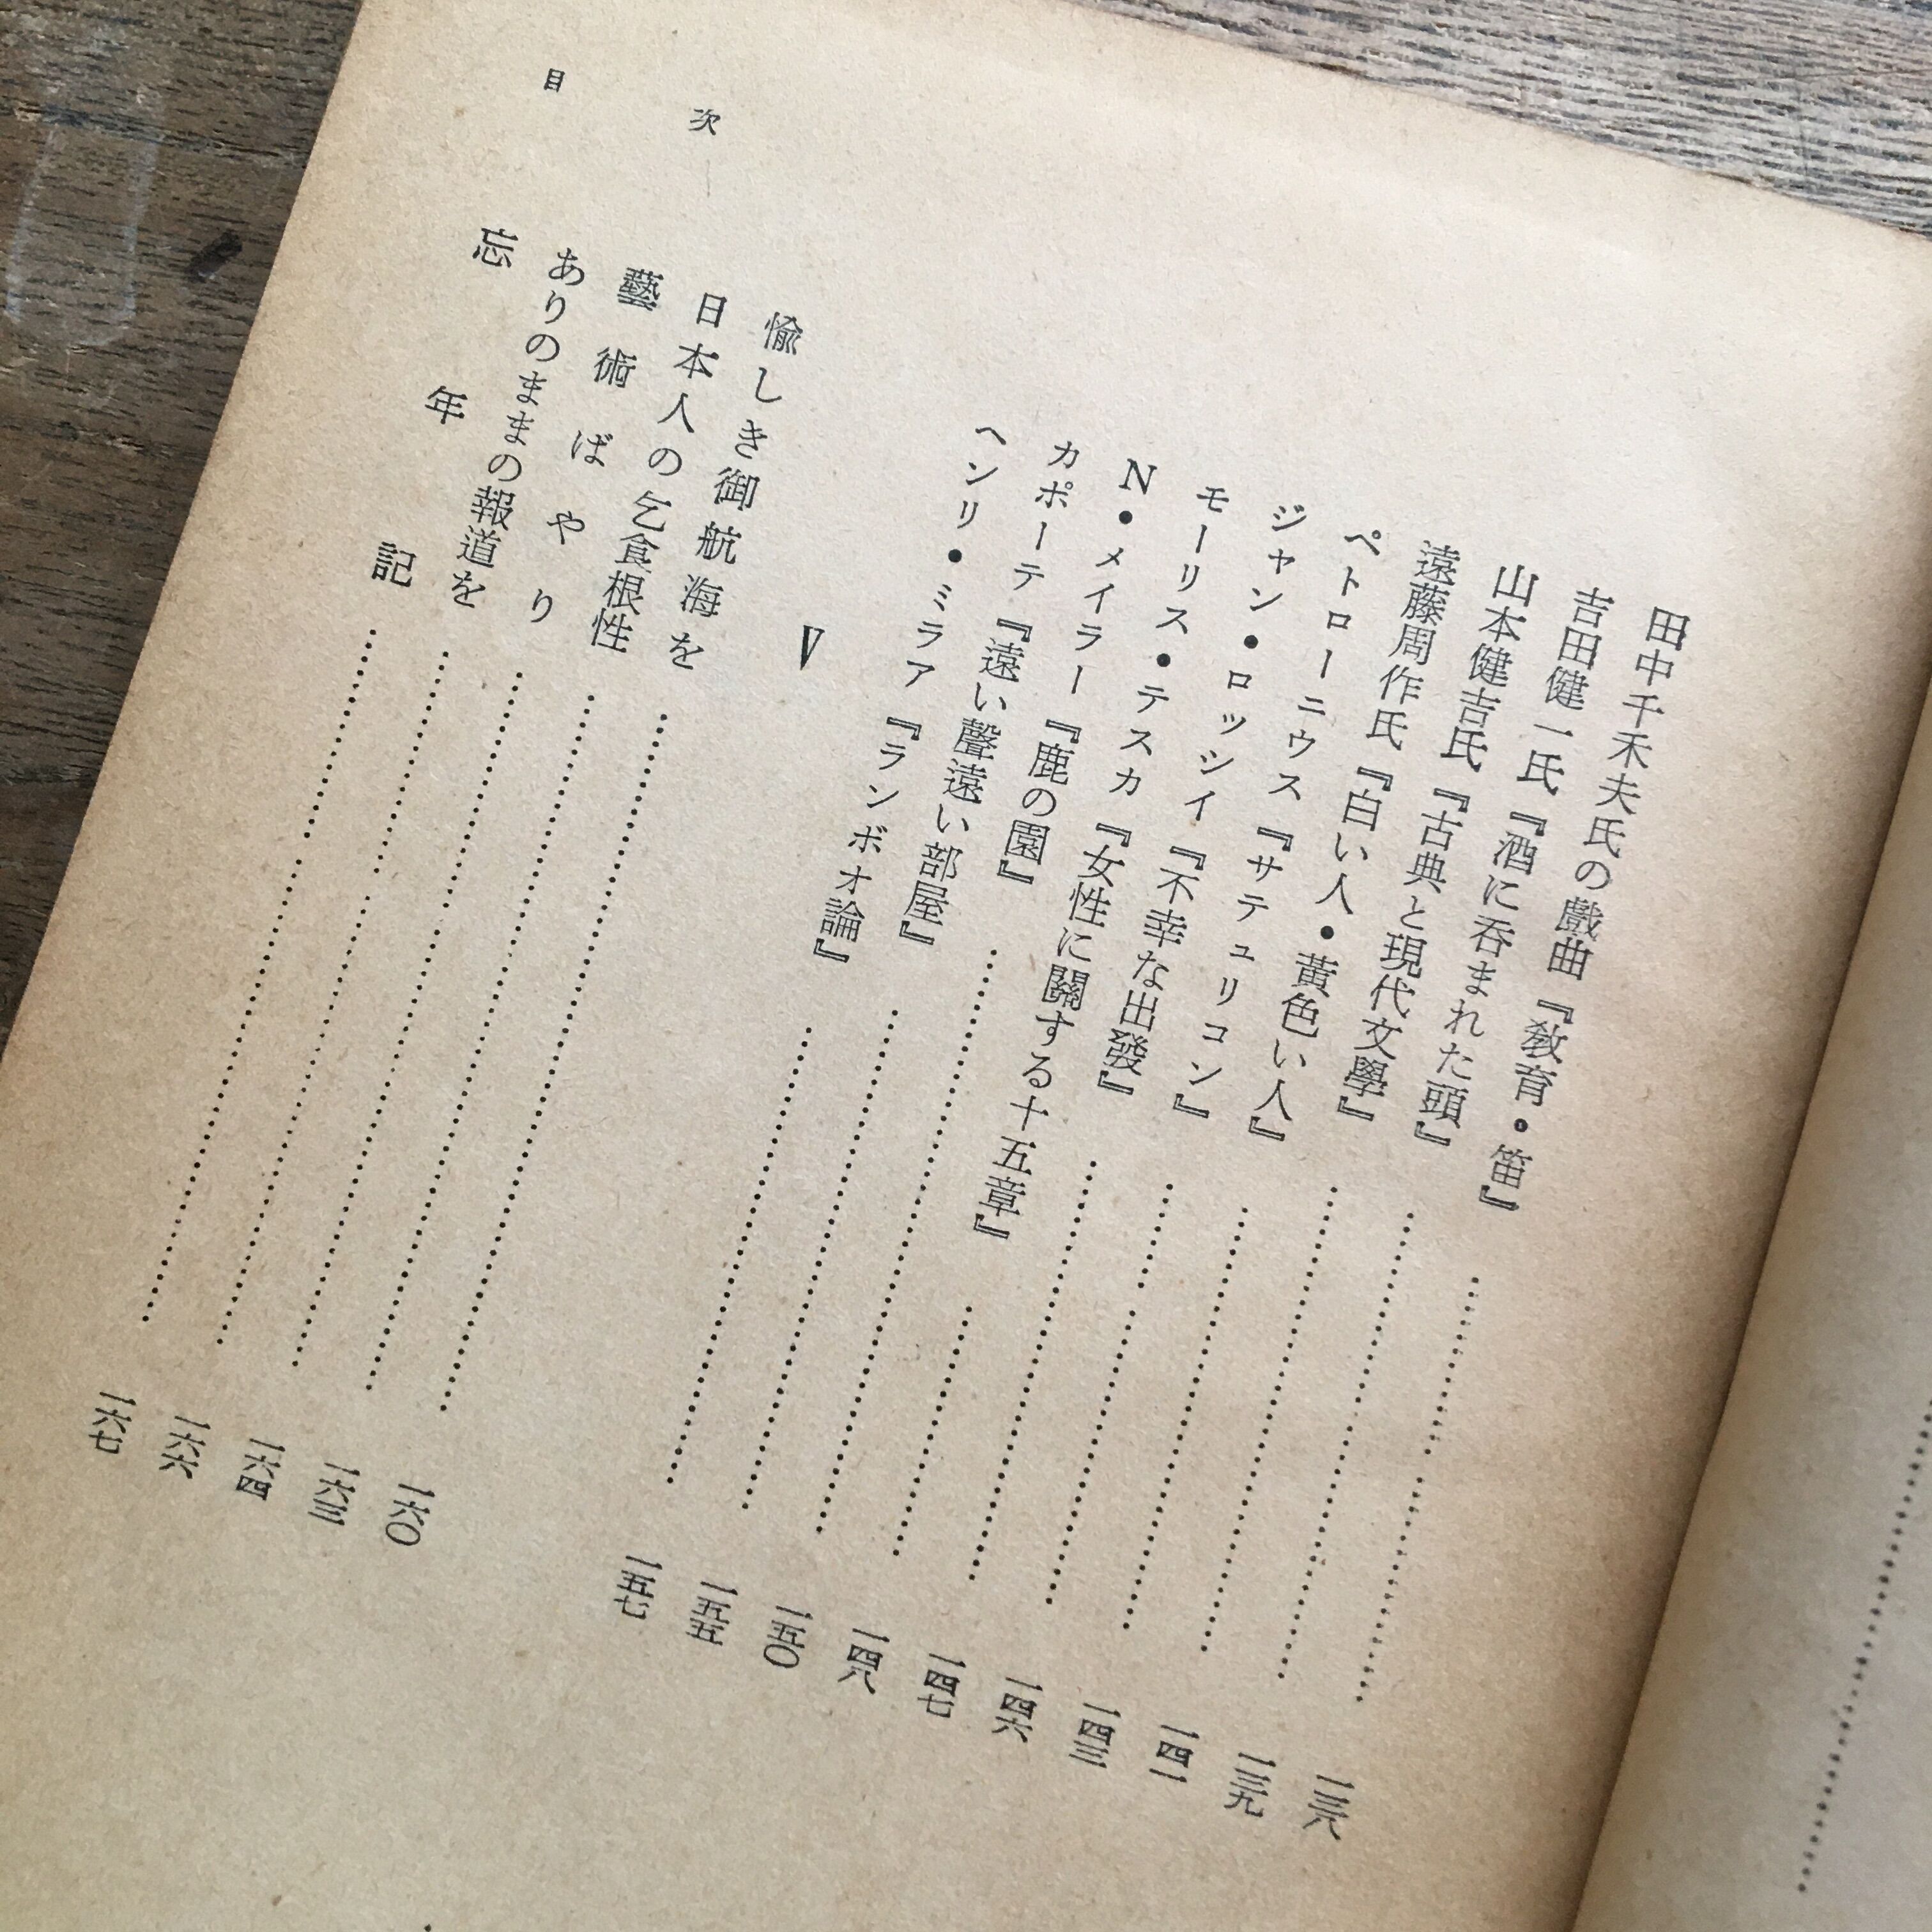 田中千禾夫氏の戲曲『敎育・笛』……一三八
吉田健一氏『酒に呑まれた頭』……一三九
山本健吉氏『古典と現代文學』……一四一
遠藤周作氏『白い人・黃色い人』……一四三
ペトローニウス『サテュリコン』……一四六
ジャン・ロッシイ『不幸な出發』……一四七
モーリス・テスカ『女性に關する十五章』……一四八
N・メイラー『鹿の園』……一五〇
カポーテ『遠い聲遠い部屋』……一五五
ヘンリ・ミラア『ランボオ論』……一五七
V
愉しき御航海を……一六〇
日本人の乞食根性……一六三
藝術ばやり……一六四
ありのままの報道を……一六六
忘年記……一六七
目次